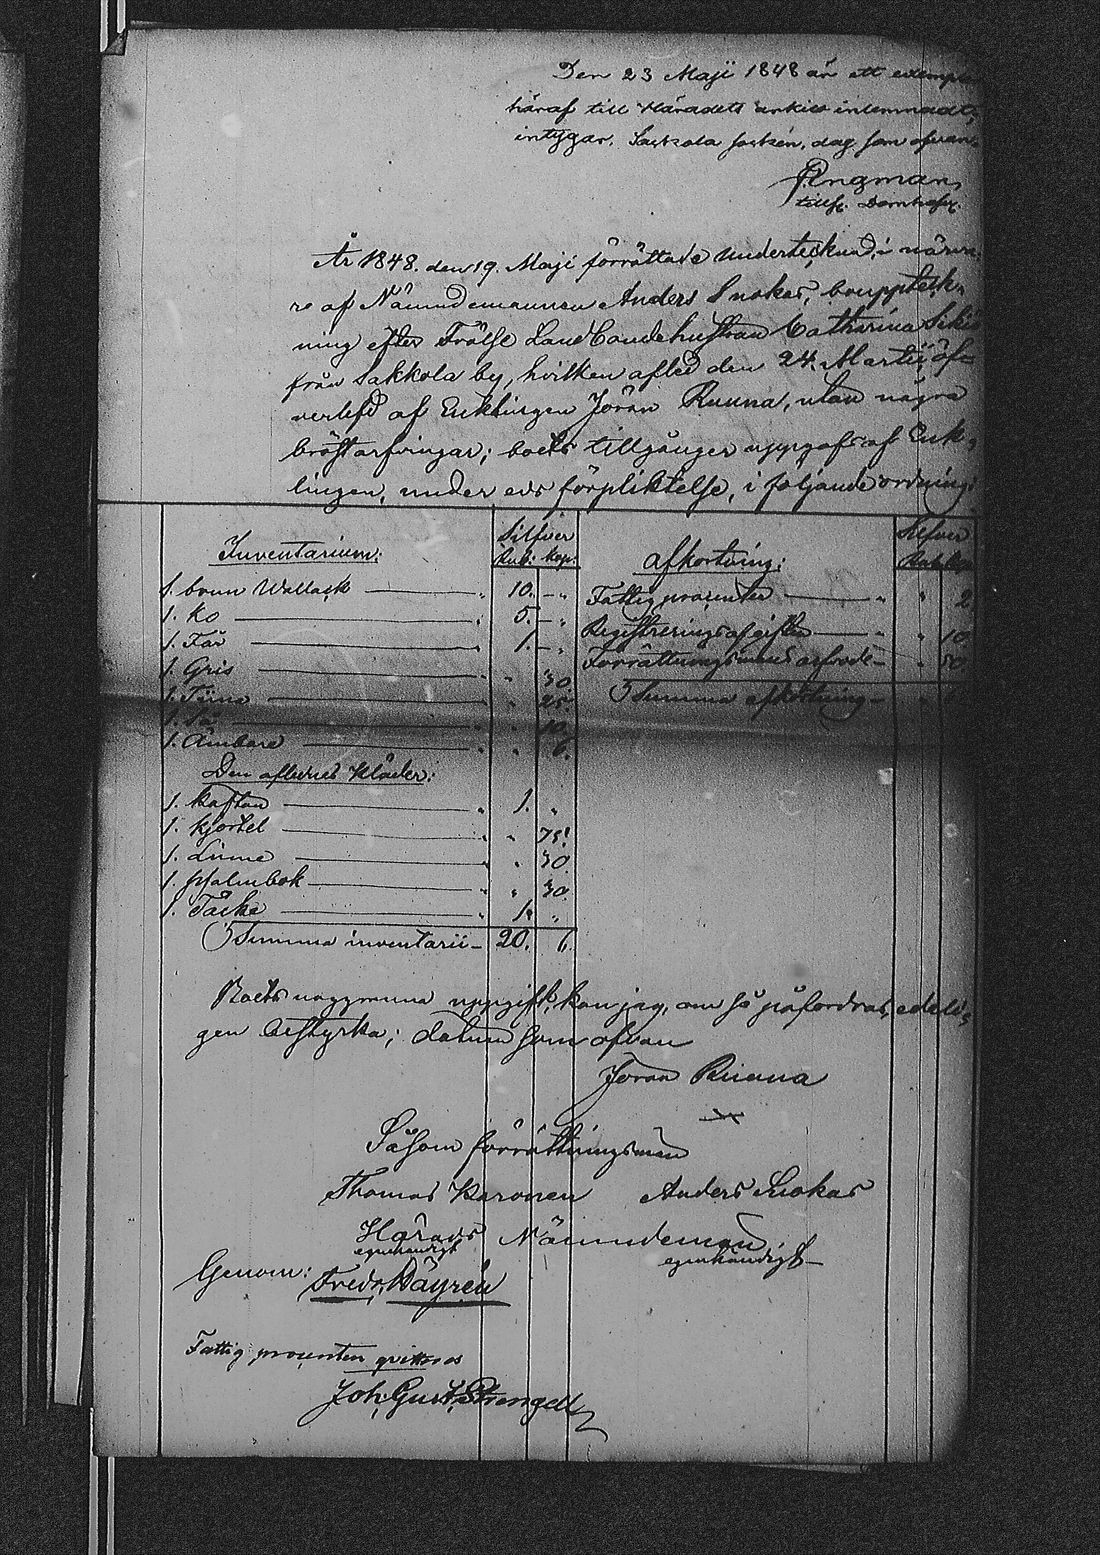 Den 23 Maji 1848 är ett exempla
häraf till Häradets arkiv inlemnadt,
intygar. Sakkola dag som ofvan
Engman
tillf. Domhafv.
År 1848. den 19. Maji förrättade Undertecknad, i närva
re af Nämndemannen Anders Snokas, bouppteck-
ning efter Frälse Landbondehustrun Catharina Sikiö
från Sakkola by, hvilken afled den 24. Martii, öf-
verlefd af Enklingen Jöran Ruuna, utan några
bröstarfvingar; boets tillgånger uppgafs af Enk-
lingen, under eds förpliktelse, i följande ordning:
Inventarium: Silfver
Rub. Kop.
1. brun Wallack 10. -„
1. ko 5. -„
1. Får 1. -„
1. Gris „ 30.
1. Tiina „ 25.
1. Så „ 10.
1. Ämbare „ 6.
Den aflidnes Kläder:
1. kaftan 1. „
1. kjortel „ 75.
1. Linne „ 30.
1. psalmbok „ 30.
1. Täcke 1. „
Summa inventarii 20. 6.
Afkortning: Silfver
Rub. Kop.
Fattig procenter „ „ 2
Registreringsafgiften „ „ 10.
Förrättningsmans arfvode „ 50.
Summa afkortning
Boets noggranna uppgift, kan jag, om så påfordras, edeli-
gen bestyrka; datum som ofvan
Jöran Ruuna
Såsom förrättningsmän
Thomas Karonen Anders Snokas
Härads Nämndeman
egenhändigt egenhändigt
Genom: Fredr. Käyrén
Fattig procenten qvitteras
Joh. Gust. Strengell